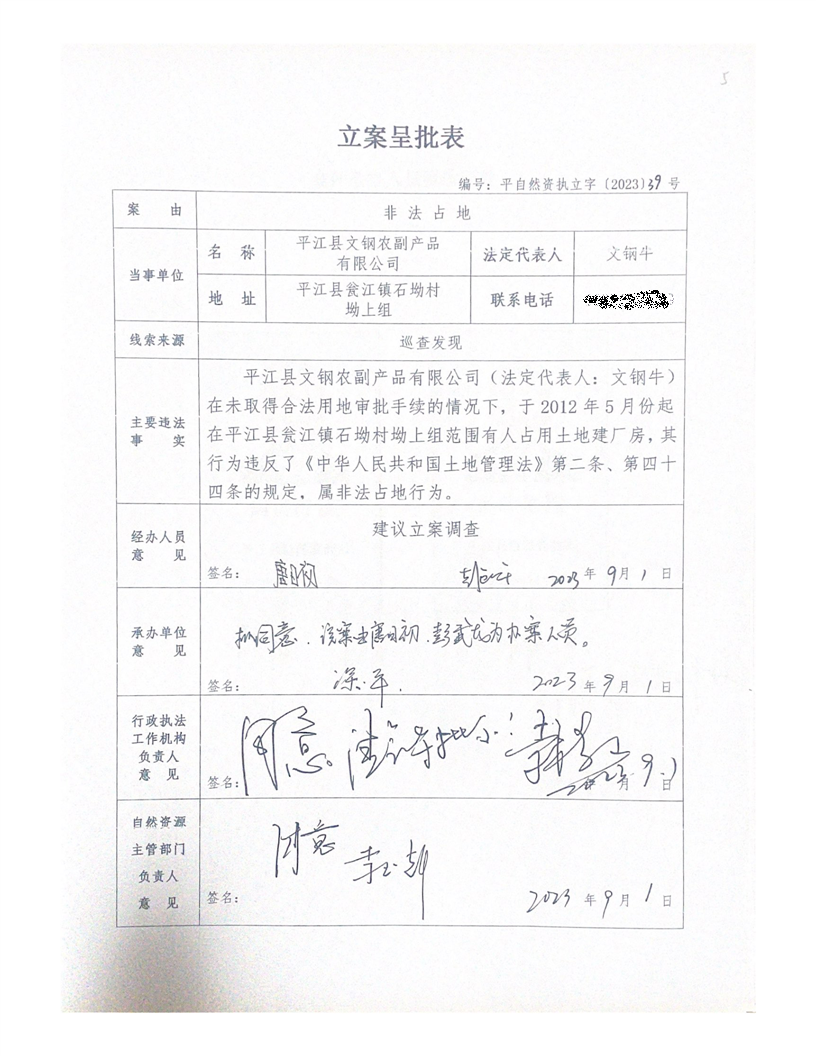 5
立案呈批表
编号：平自然资执立字〔2023〕39号
案 由
非法占地
当事单位
名 称
平江县文钢农副产品
有限公司
法定代表人
文钢牛
地 址
平江县瓮江镇石坳村
坳上组
联系电话
线索来源
巡查发现
主要违法
事 实
平江县文钢农副产品有限公司（法定代表人：文钢牛）
在未取得合法用地审批手续的情况下，于2012年5月份起
在平江县瓮江镇石坳村坳上组范围有人占用土地建厂房，其
行为违反了《中华人民共和国土地管理法》第二条、第四十
四条的规定，属非法占地行为。
经办人员
意 见
建议立案调查
签名：
2023年9月1日
承办单位
意 见
拟同意，该案由唐日初、彭武龙为办案人员。
签名：
2023年9月1日
行政执法
工作机构
负责人
意 见
同意。
签名：
2023 月9.1日
自然资源
主管部门
负责人
意 见
同意
签名：
2023年9月1日